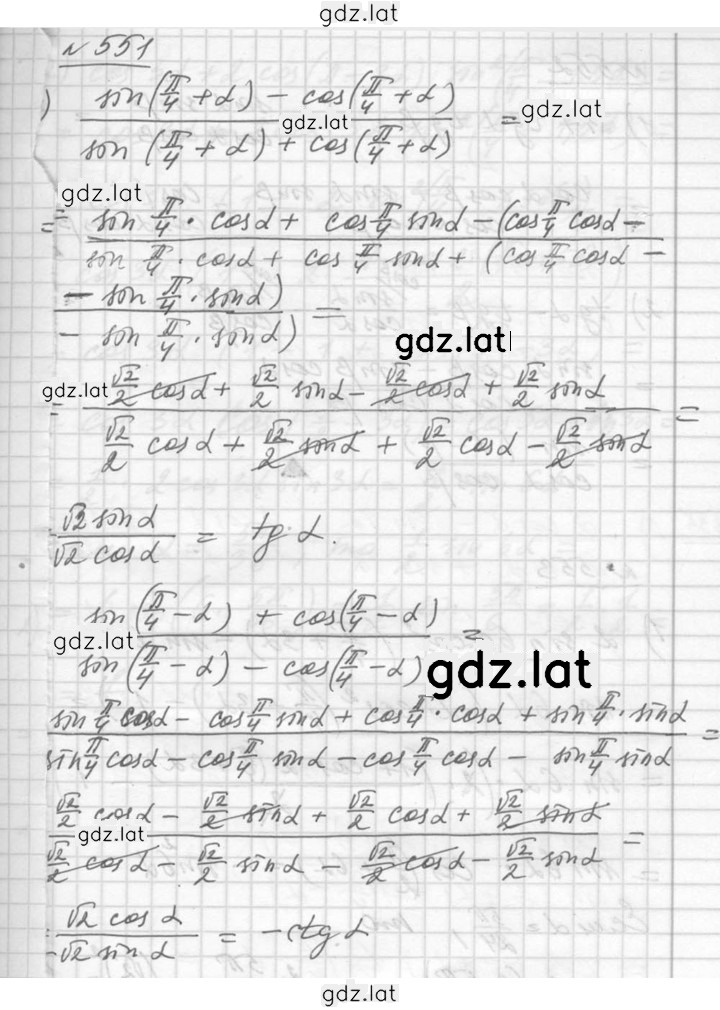 gdz.lat
№ 551
) (sin(π/4 + α) − cos(π/4 + α)) / (sin(π/4 + α) + cos(π/4 + α)) =
gdz.lat
gdz.lat
gdz.lat
= (sin π/4 · cosα + cos π/4 sinα − (cos π/4 cosα −) / (sin π/4 · cosα + cos π/4 sinα + (cos π/4 cosα −)
(− sin π/4 · sinα)) / (− sin π/4 · sinα)) =
gdz.lat
gdz.lat
= (√2/2 cosα + √2/2 sinα − √2/2 cosα + √2/2 sinα) / (√2/2 cosα + √2/2 sinα + √2/2 cosα − √2/2 sinα) =
(√2 sinα) / (√2 cosα) = tg α.
(sin(π/4 − α) + cos(π/4 − α)) / (sin(π/4 − α) − cos(π/4 − α)) =
gdz.lat
gdz.lat
(sin π/4 cosα − cos π/4 sinα + cos π/4 · cosα + sin π/4 · sinα) / (sin π/4 cosα − cos π/4 sinα − cos π/4 cosα − sin π/4 sinα) =
(√2/2 cosα − √2/2 sinα + √2/2 cosα + √2/2 sinα) / (√2/2 cosα − √2/2 sinα − √2/2 cosα − √2/2 sinα) =
gdz.lat
(√2 cosα) / (−√2 sinα) = −ctg α
gdz.lat